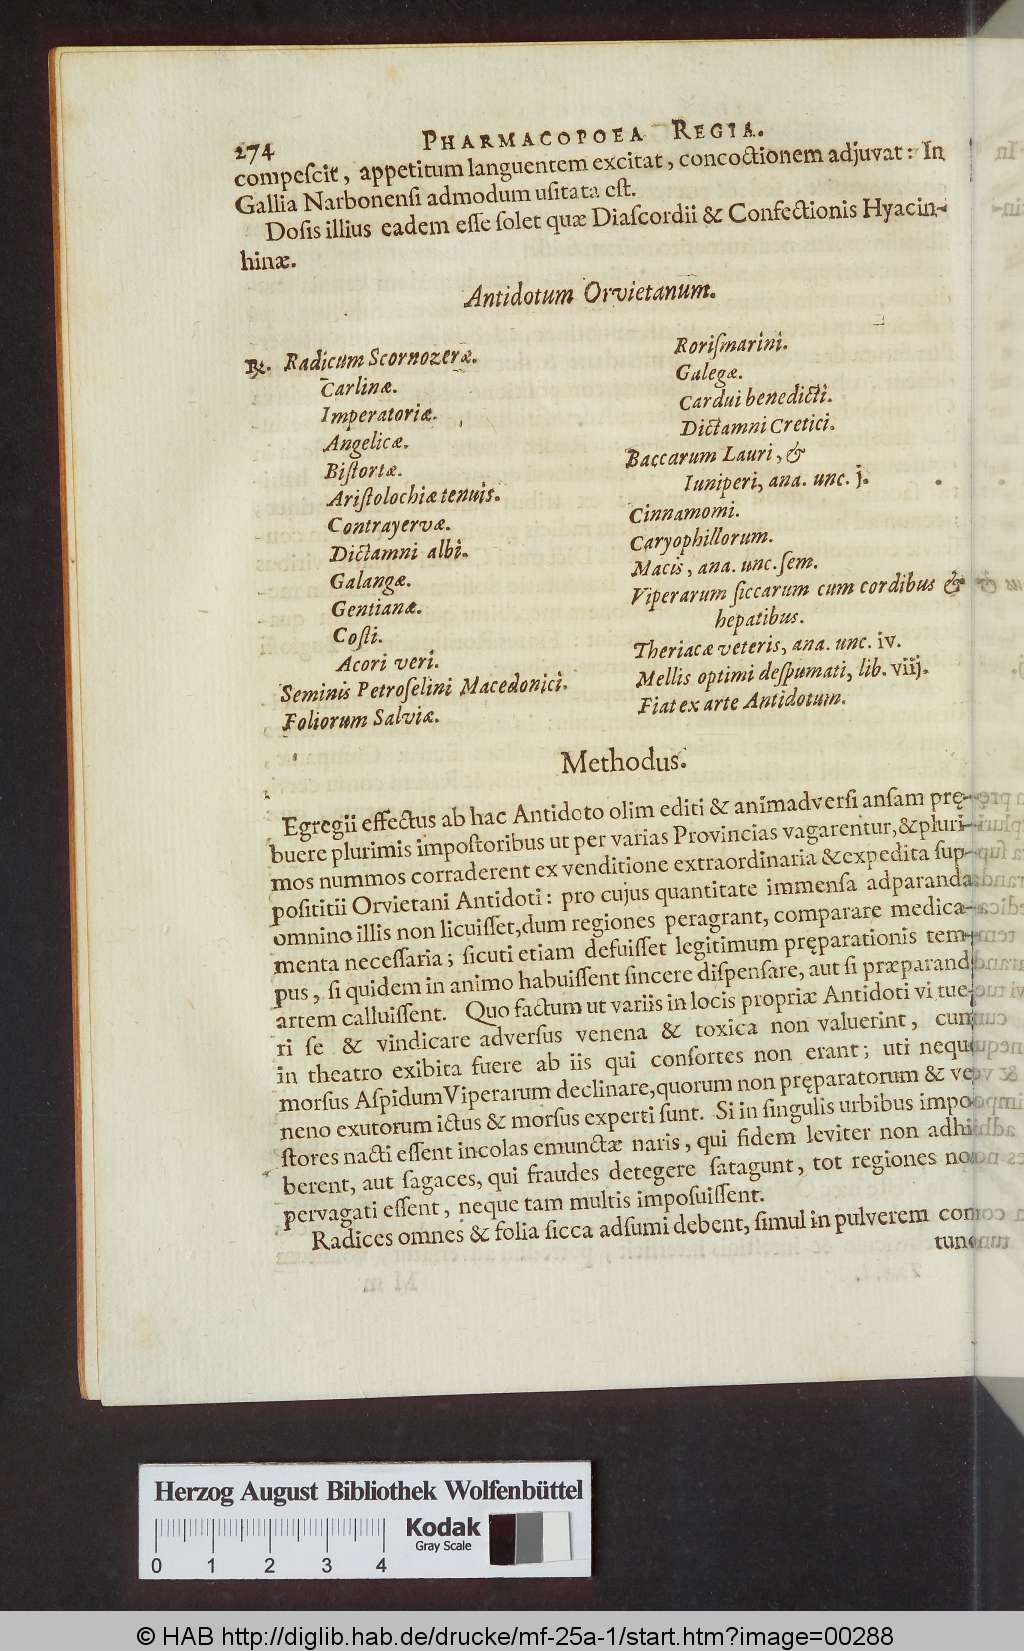 274 PHARMACOPOEA REGIA.
compeſcit, appetitum languentem excitat, concoctionem adjuvat: In
Gallia Narbonenſi admodum uſitata eſt.
Doſis illius eadem eſſe ſolet quæ Diaſcordii & Confectionis Hyacin-
hinæ.
Antidotum Orvietanum.
℞. Radicum Scornozeræ.
Carlinæ.
Imperatoriæ.
Angelicæ.
Biſtortæ.
Ariſtolochiæ tenuis.
Contrayervæ.
Dictamni albi.
Galangæ.
Gentianæ.
Coſti.
Acori veri.
Seminis Petroſelini Macedonici.
Foliorum Salviæ.
Roriſmarini.
Galegæ.
Cardui benedicti.
Dictamni Cretici.
Baccarum Lauri, &
Iuniperi, ana. unc. j.
Cinnamomi.
Caryophillorum.
Macis, ana. unc. ſem.
Viperarum ſiccarum cum cordibus &
hepatibus.
Theriacæ veteris, ana. unc. iv.
Mellis optimi deſpumati, lib. viij.
Fiat ex arte Antidotum.
Methodus.
Egregii effectus ab hac Antidoto olim editi & animadverſi anſam prę-
buere plurimis impoſtoribus ut per varias Provincias vagarentur, & pluri-
mos nummos corraderent ex venditione extraordinaria & expedita ſup-
poſititii Orvietani Antidoti: pro cujus quantitate immenſa adparanda
omnino illis non licuiſſet, dum regiones peragrant, comparare medica-
menta neceſſaria; ſicuti etiam defuiſſet legitimum pręparationis tem-
pus, ſi quidem in animo habuiſſent ſincere diſpenſare, aut ſi præparand
artem calluiſſent. Quo factum ut variis in locis propriæ Antidoti vi tue-
ri ſe & vindicare adverſus venena & toxica non valuerint, cum
in theatro exibita fuere ab iis qui conſortes non erant; uti nequ
morſus Aſpidum Viperarum declinare, quorum non pręparatorum & ve
neno exutorum ictus & morſus experti ſunt. Si in ſingulis urbibus impo
ſtores nacti eſſent incolas emunctæ naris, qui fidem leviter non adhi
berent, aut ſagaces, qui fraudes detegere ſatagunt, tot regiones no
pervagati eſſent, neque tam multis impoſuiſſent.
Radices omnes & folia ſicca adſumi debent, ſimul in pulverem con
tun
Herzog August Bibliothek Wolfenbüttel
Kodak
Gray Scale
0 1 2 3 4
© HAB http://diglib.hab.de/drucke/mf-25a-1/start.htm?image=00288